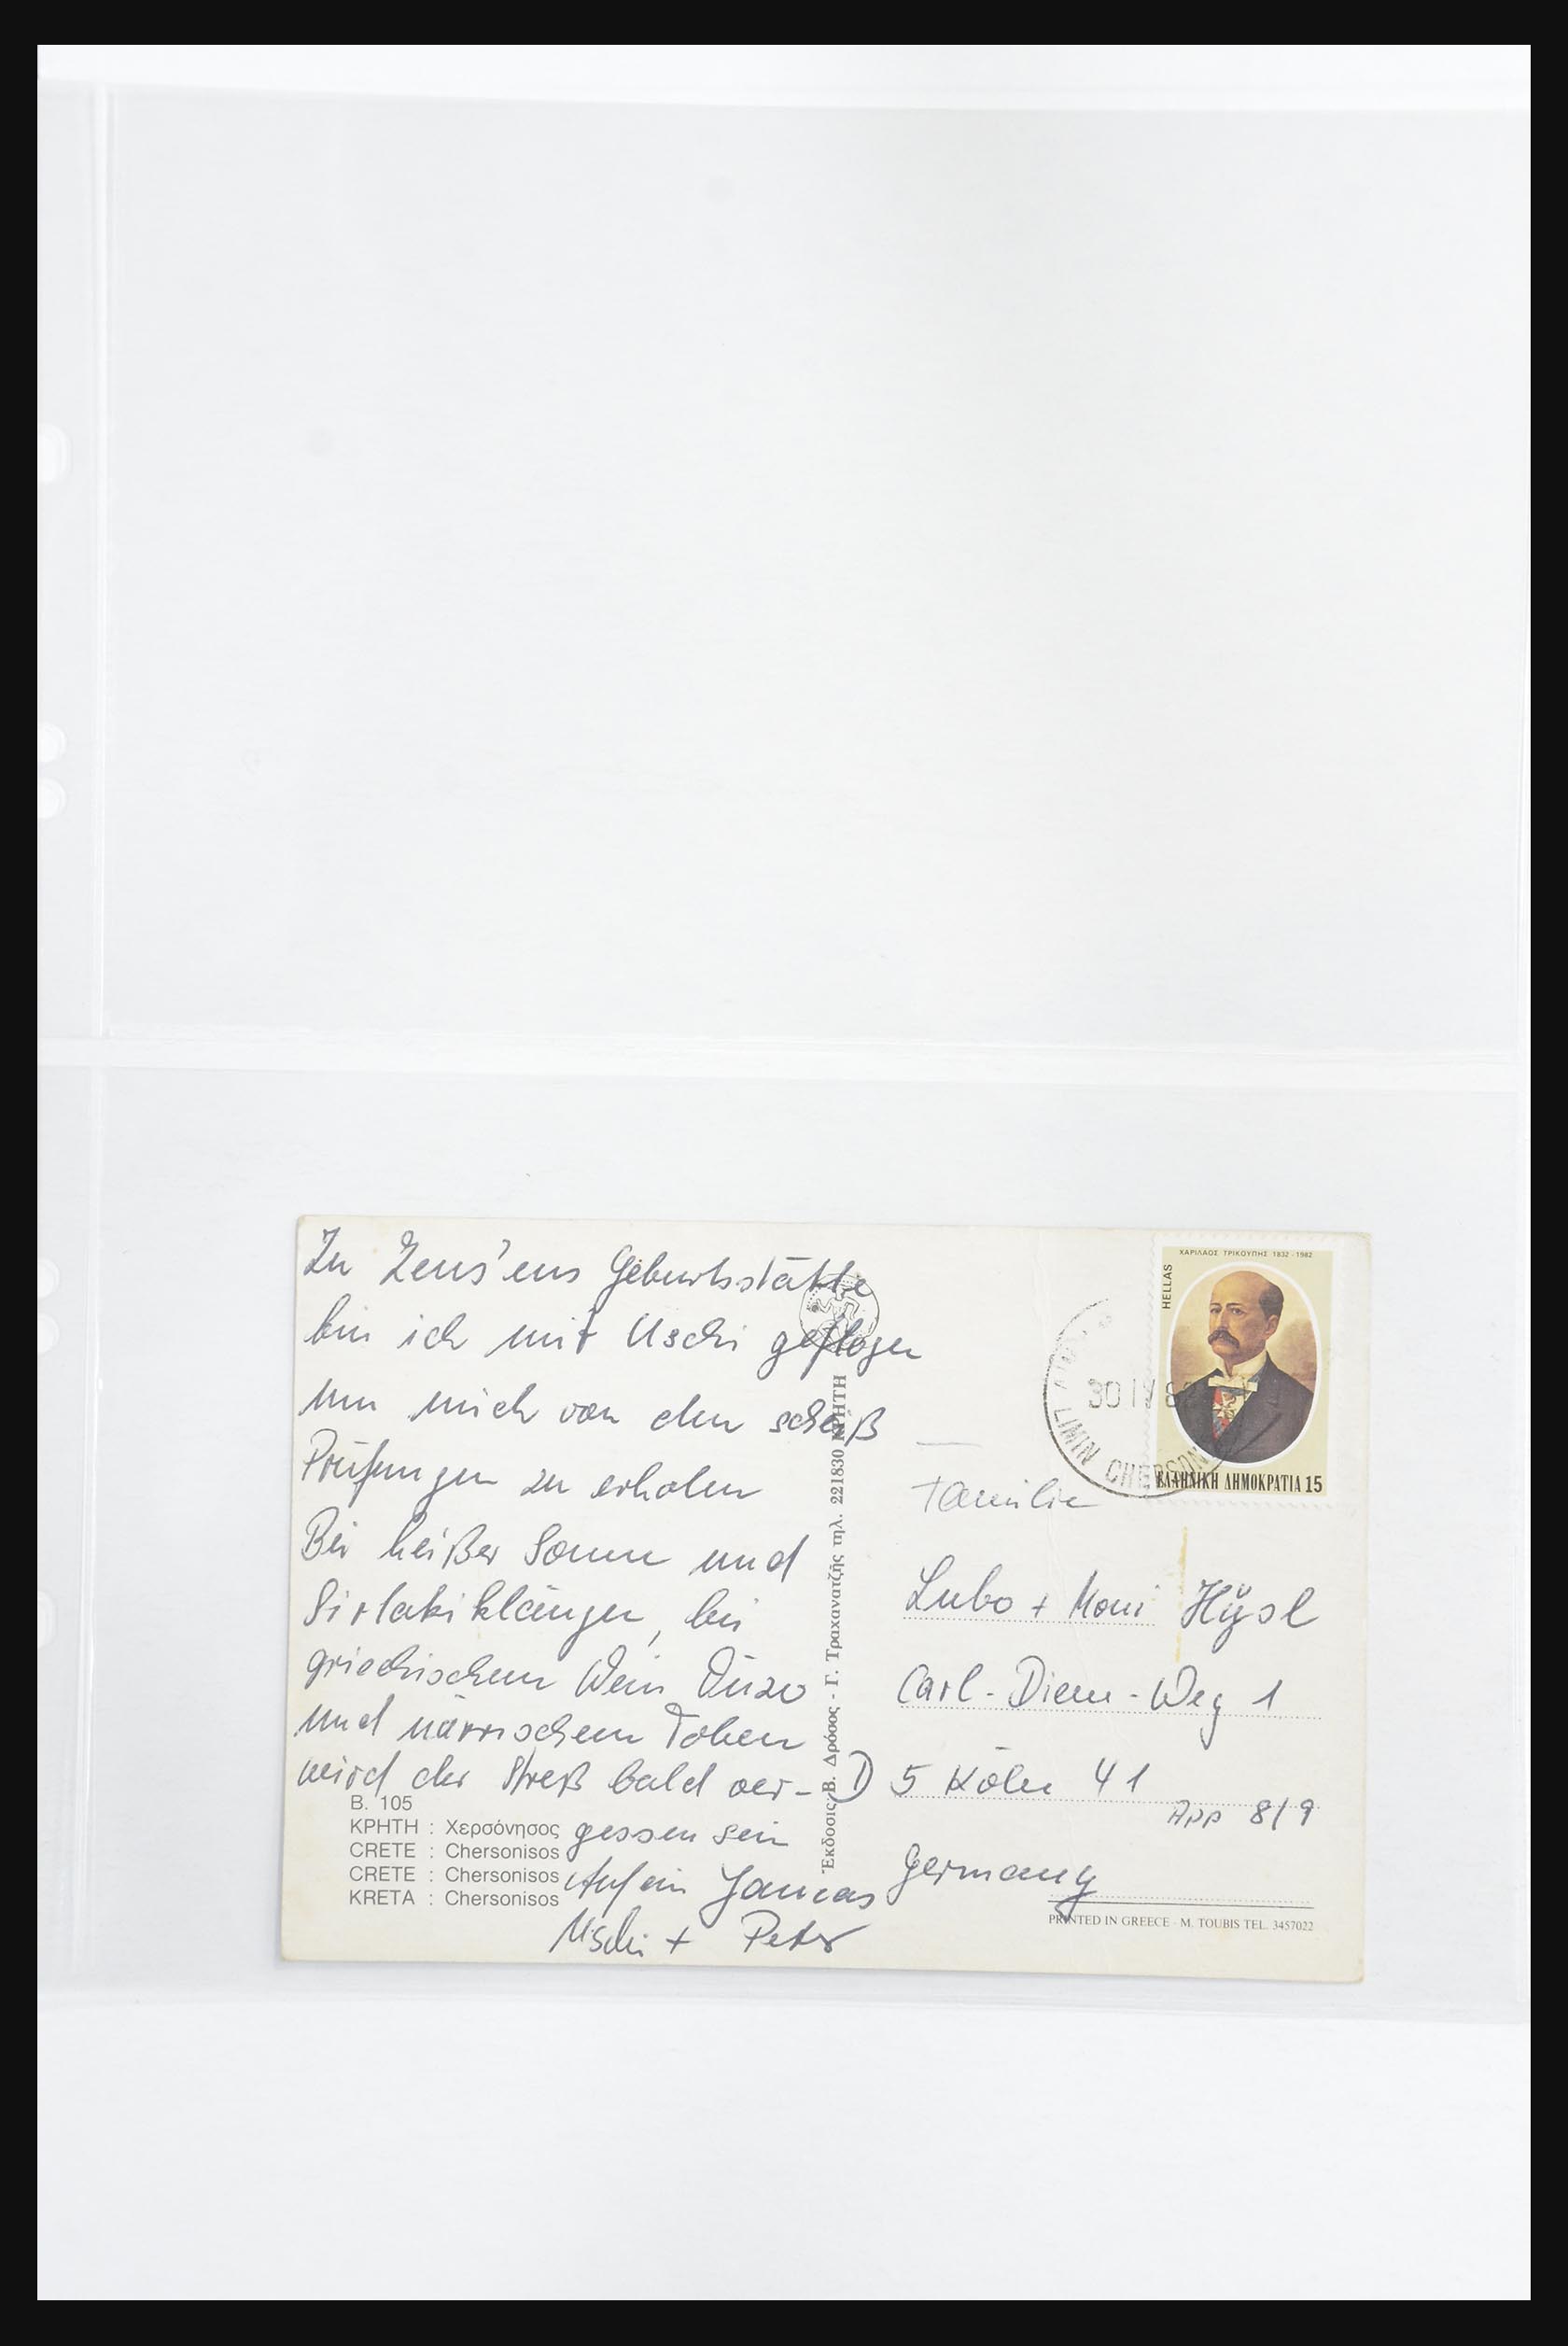 Zu Zeus'ens Geburtsstätte
bin ich mit Uschi geflogen
um mich von den scheiß
Prüfungen zu erholen
Bei heißer Sonne und
Sirtakiklängen, bei
griechischem Wein Ouzo
und närrischem Toben
wird der Streß bald ver-
gessen sein
Auf ein Jamas
Uschi + Peter
B. 105
ΚΡΗΤΗ : Χερσόνησος
CRETE : Chersonisos
CRETE : Chersonisos
KRETA : Chersonisos
Ἐκδοσις Β. Δρόσος - Γ. Τραχανατζῆς τηλ. 221830 ΚΡΗΤΗ
ΧΑΡΙΛΑΟΣ ΤΡΙΚΟΥΠΗΣ 1832-1982
HELLAS
ΕΛΛΗΝΙΚΗ ΔΗΜΟΚΡΑΤΙΑ 15
30 IV
LIMIN CHERSON
Familie
Lubo + Moni
Carl-Diem-Weg 1
D 5 Köln 41
App 8/9
Germany
PRINTED IN GREECE - M. TOUBIS TEL. 3457022